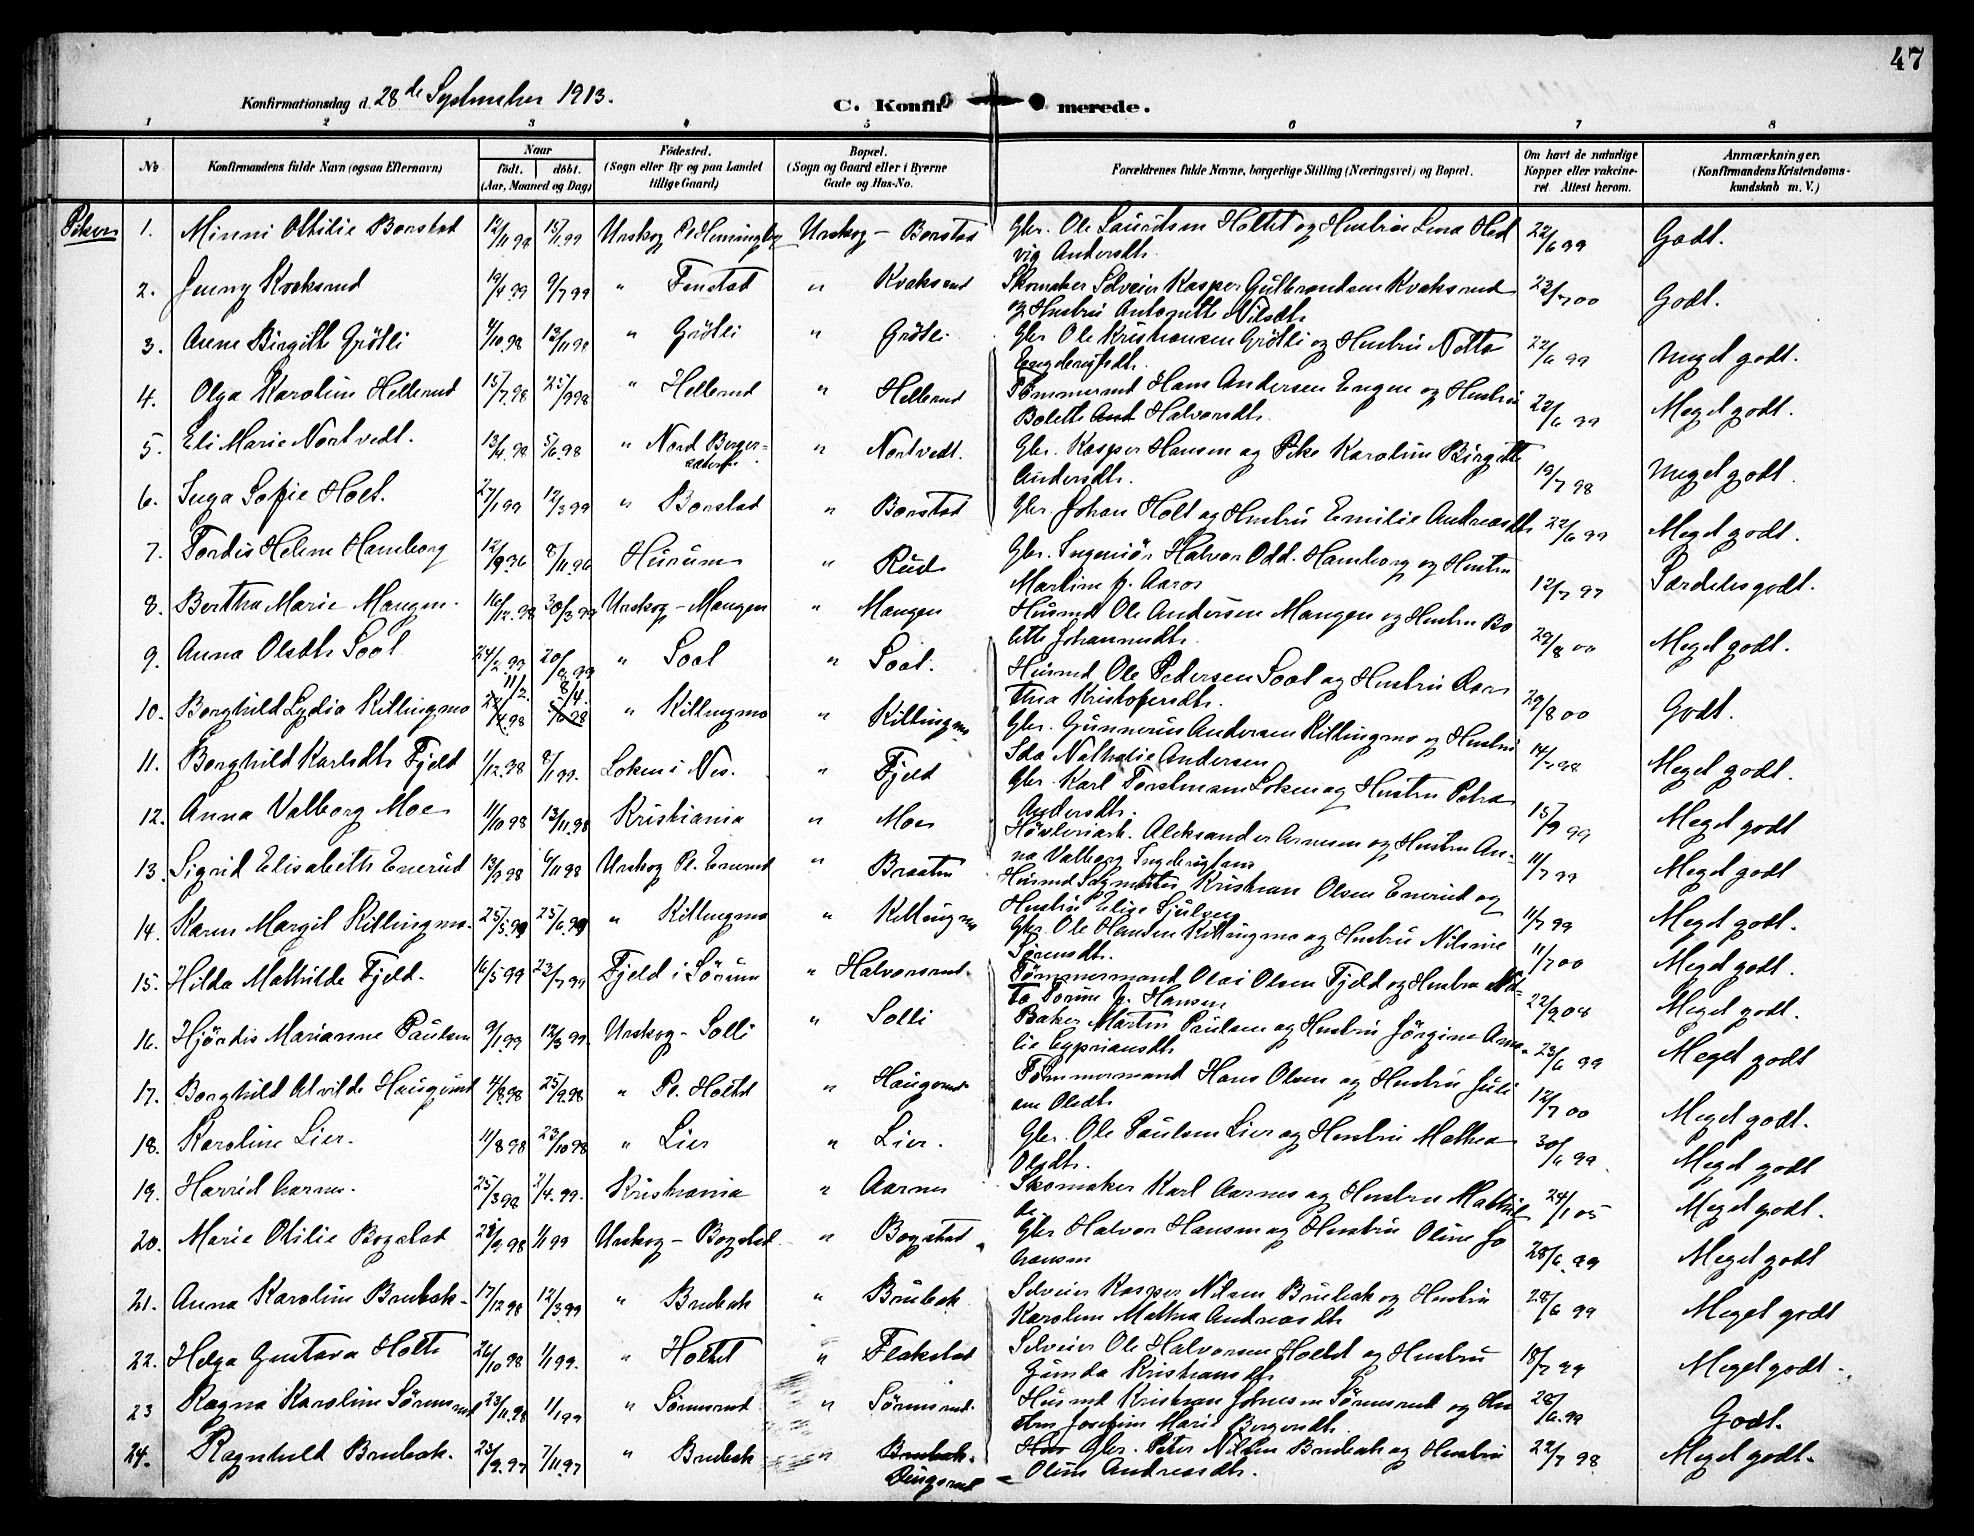 47
Konfirmationsdag d. 28de September 1913.
C. Konfirmerede.
1 2 3 4 5 6 7 8
No Konfirmandens fulde Navn (ogsaa Efternavn) Naar født. døbt. (Aar, Maaned og Dag) Fødested. (Sogn eller By og paa Landet tillige Gaard) Bopæl. (Sogn og Gaard eller i Byerne Gade og Hus-No.) Forældrenes fulde Navne, borgerlige Stilling (Næringsvei) og Bopæl. Om havt de naturlige Kopper eller vakcineret. Attest herom. Anmærkninger. (Konfirmandens Kristendomskundskab m. V.)
Piker
1. Minni Othilie Borstad 12/11 98 15/1 99 Urskog Pl. Hemningby Urskog - Borstad Gbr. Ole Lauritsen Holtet og Hustru Lina Hed 22/6 99 Godt.
vig Andersdtr.
2. Jenny Kvaksrud 19/4 99 9/7 99 " Finstad " Kvaksrud Skomaker Selveier Kasper Gulbrandsen Kvaksrud 23/7 00 Godt.
og Hustru Antonette Nilsdtr.
3. Anne Birgitte Grötli 4/10 98 13/11 98 " Grötli " Grötli Gbr Ole Kristiansen Grötli og Hustru Netta 22/6 99 Meget godt.
4. Olga Karoline Hellerud 15/7 98 25/9 98 " Hellerud " Hellerud Tømmermd Hans Andersen Engen og Hustru 22/6 99 Meget godt.
Bolette Halvorsdtr.
5. Eli Marie Nortvedt. 13/4 98 5/6 98 " Nord Berger- " Nortvedt. Gbr. Kasper Hansen og Pike Karoline Birgitte 19/7 98 Meget godt.
Andersdtr.
6. Inga Sofie Holt. 27/1 99 12/3 99 " Borstad " Borstad Gbr. Johan Holt og Hustru Emilie Andreasdtr 22/6 99 Meget godt.
7. Tordis Helene Hamborg 12/9 96 8/11 96 Hurum " Rud Gbr. Ingeniör Halvor Odd. Hamborg og Hustru 12/7 97 Særdeles godt.
Martine f. Aaros
8. Bertha Marie Mangen. 16/12 98 30/3 99 Urskog - Mangen " Mangen Husmd Ole Andersen Mangen og Hustru Bo 29/8 00 Meget godt.
lette Johannesdtr.
9. Anna Olsdtr Soot 24/2 99 20/ 99 " Soot " Soot. Husmd Ole Pedersen Soot og Hustru Aas 29/8 00 Godt.
thea Kristofersdtr.
10. Borghild Lydia Killingmo 11/2. 98 8/4. 98 " Killingmo " Killingmo Gbr. Gunnerius Andersen Killingmo og Hustru 14/7 98 Meget godt.
Ida Nathalie Andersen
11. Borghild Karlsdtr Fjeld 1/12 98 8/1 99. Loken i Nes. " Fjeld Gbr. Karl Torstensen Loken og Hustru Petra 15/9 99 Meget godt
Andersdtr.
12. Anna Valborg Moe 11/10 98 13/11 98 Kristiania " Moe Høvleriarb. Aleksander Arnesen og Hustru An- 11/7 99 Meget godt
na Valborg
13. Sigrid Elisabeth Enerud 13/9 98 6/11 98 Urskog Pl. Enerud " Braaten Husmd Kristian Olsen Enerud og 11/7 99 Meget godt.
Hustru Elise
14. Karen Margit Killingmo. 25/5 99 25/6 99 " Killingmo " Killingmo Gbr Ole Hansen Killingmo og Hustru Nilsine 11/7 00 Meget godt.
Sørensdtr.
15. Hilda Mathilde Fjeld. 16/5 99 23/7 99 Fjeld i Sörum " Halvorsrud. Tømmermand Olai Olsen Fjeld og Hustru Net- 22/9 08 Meget godt.
ta Hansen
16. Hjördis Marianne Paulsen 9/1 99 12/3 99 Urskog - Solli " Solli Baker Martin Paulsen og Hustru Jörgine Ama- 23/6 99 Meget godt
lie Cypriansdtr
17. Borghild Alvilde Haugsrud 4/8 98 25/9 98 " Pl. Holtet " Haugsrud Tømmermand Hans Olsen og Hustru Juli 12/7 00 Meget godt.
ane Olsdtr
18. Karoline Lier. 11/8 98 23/10 98 " Lier " Lier. Gbr. Ole Paulsen Lier og Hustru Mathea 30/6 99 Meget godt
Olsdtr.
19. Harriet Aarnes. 25/3 98 2/4. 99. Kristiania " Aarnes Skomaker Karl Aarnes og Hustru Mathil 24/1 05 Meget godt.
de
20. Marie Otilie Bogstad 28/9 98 1/1 99 Urskog - Bogstad " Bogstad Gbr Halvor Hansen og Hustru Oline Jo 28/6 99 Meget godt
hansen
21. Anna Karoline Brubak. 17/12 98 12/3 99 " Brubak " Brubak Selveier Kasper Nilsen Brubak og Hustru 28/6 99 Meget godt
Karoline Mathea Andreasdtr
22. Helga Gustava Holt 26/10 98 1/1 99. " Holtet " Flakstad Selveier Ole Halvorsen Holtet og Hustru 18/7 99 Meget godt.
Gunda Kristiansdtr
23 Ragna Karoline Sörensrud 23/11 98 1/1 99 " Sörensrud " Sörensrud. Husmd Kristian Johnsen Sörensrud og Hu 28/6 99 Godt.
stru Josefine Marie Borgersdtr.
24. Ragnhild Brubak. 23/9 97 7/11 97 " Brubak " Brubak. Hus Gbr. Peter Nilsen Brubak og Hustru 22/7 98 Meget godt.
Dingsrud Oline Andreasdtr.